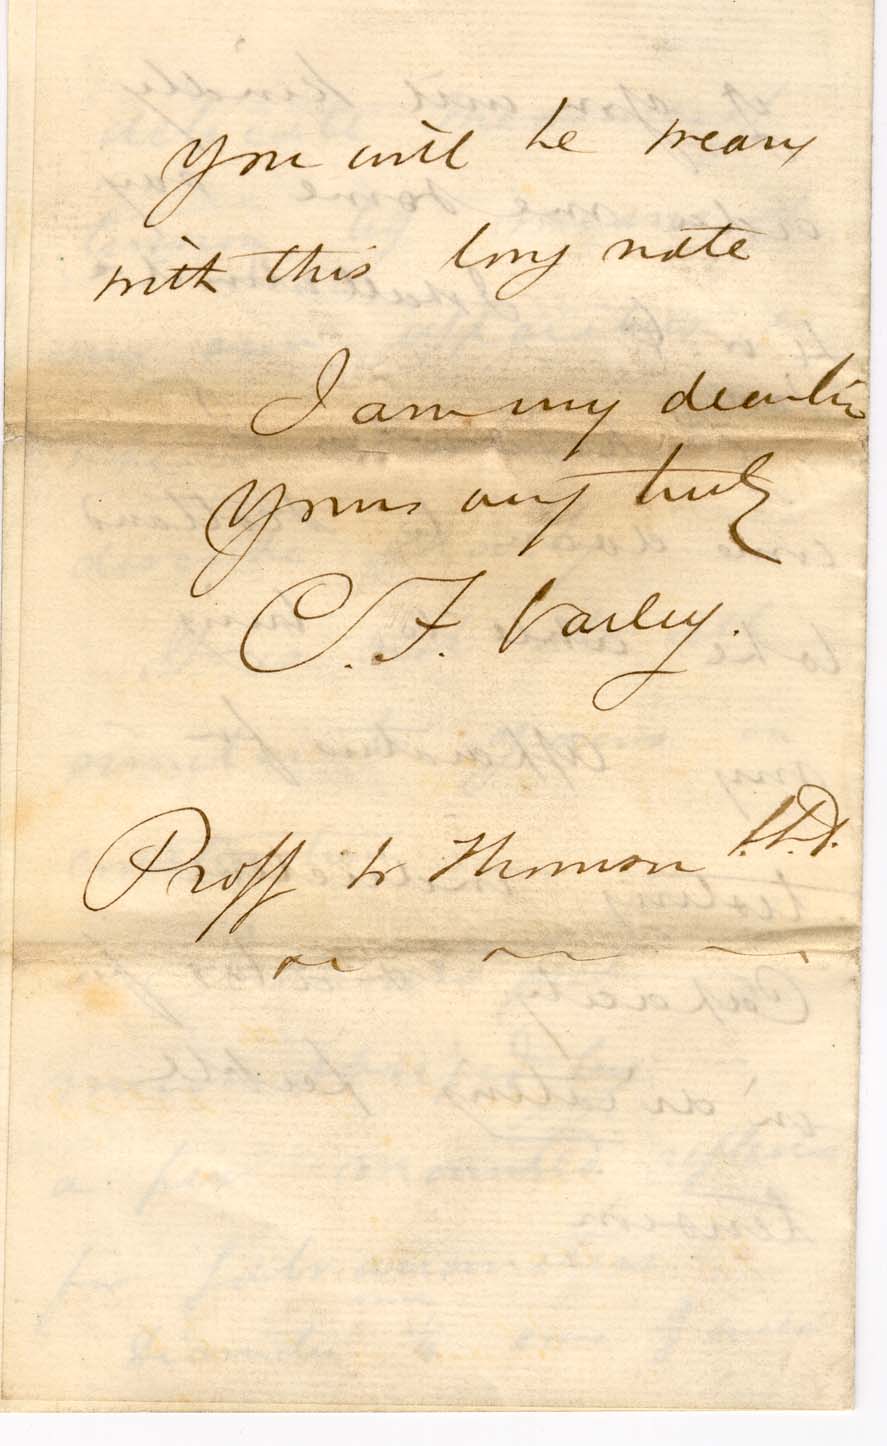 You will be weary
with this long note
I am my dear Sir
Yours very truly
C. F. Varley.
Proff W Thomson L.L.D.